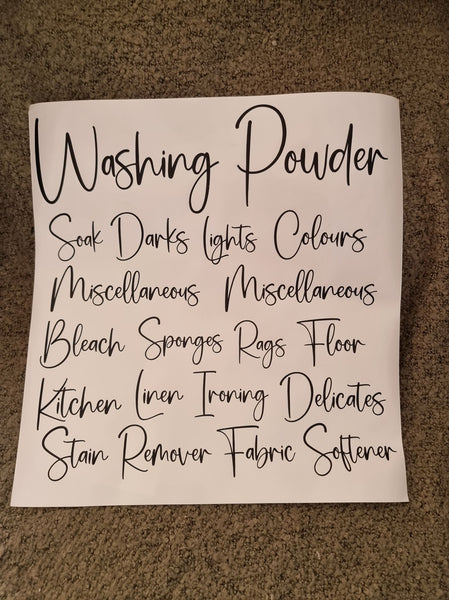 Washing Powder
Soak Darks Lights Colours
Miscellaneous Miscellaneous
Bleach Sponges Rags Floor
Kitchen Linen Ironing Delicates
Stain Remover Fabric Softener